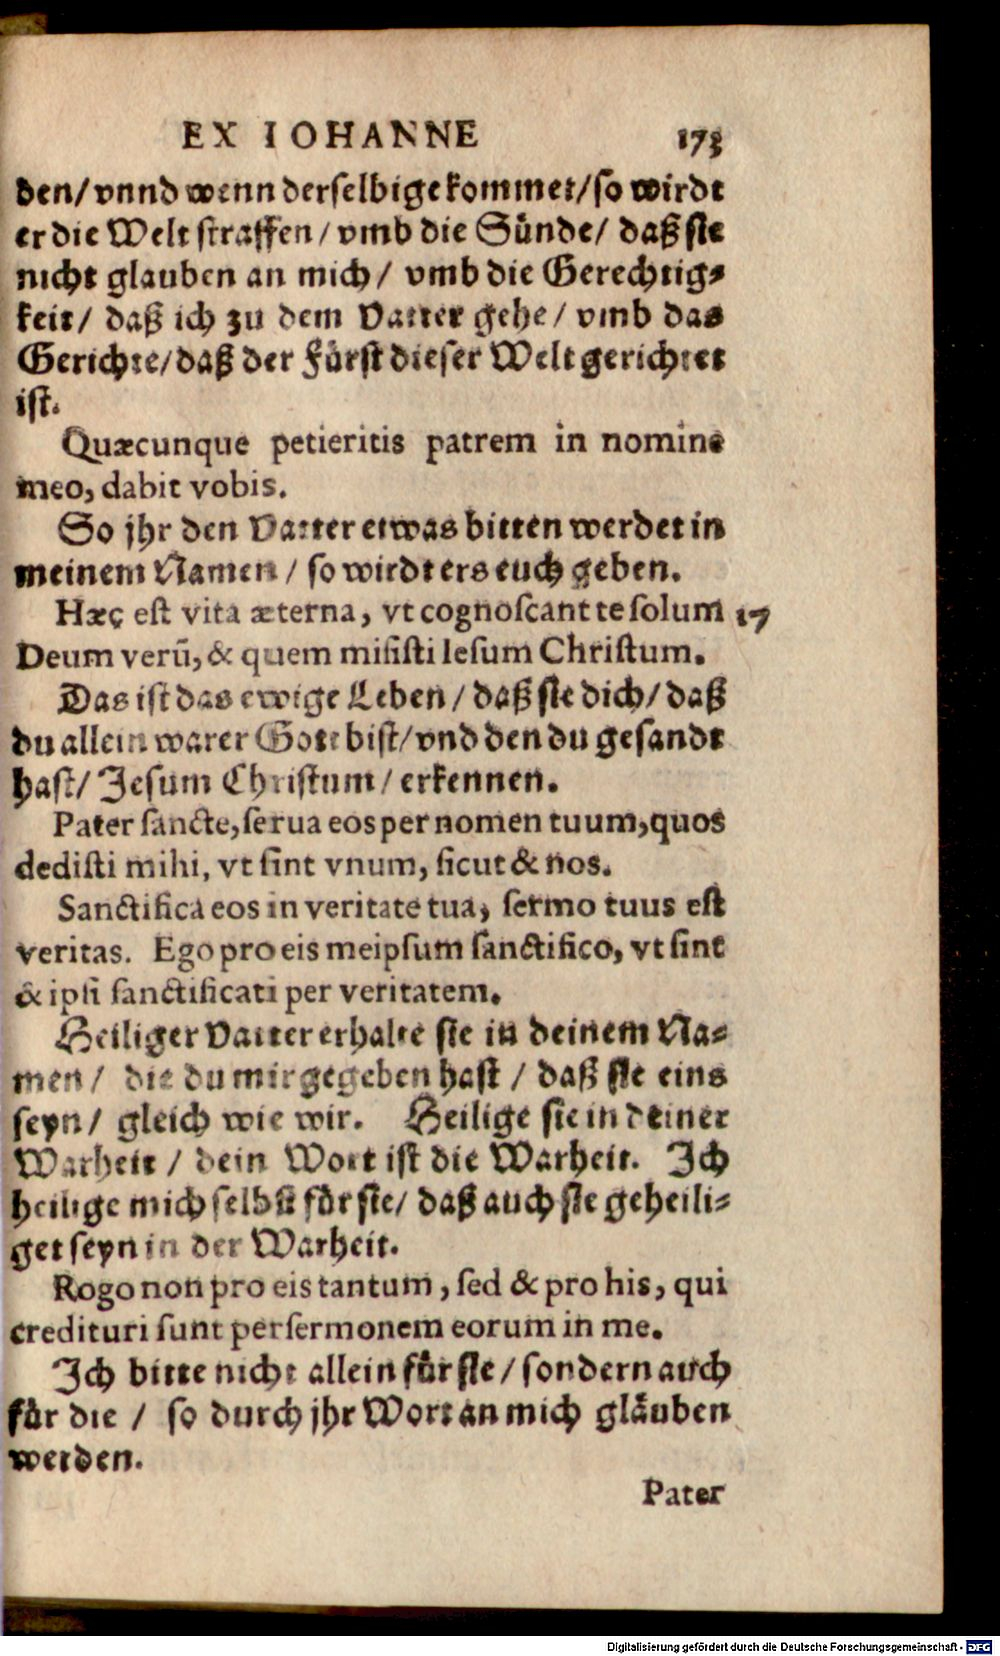 EX IOHANNE 173
den/ vnnd wenn derselbige kommet/ so wirdt
er die Welt straffen/ vmb die Sünde/ daß sie
nicht glauben an mich/ vmb die Gerechtig-
keit/ daß ich zu dem Vatter gehe/ vmb das
Gerichte/ daß der Fürst dieser Welt gerichtet
ist.
Quæcunque petieritis patrem in nomine
meo, dabit vobis.
So jhr den Vatter etwas bitten werdet in
meinem Namen/ so wirdt ers euch geben.
Hæc est vita æterna, vt cognoſcant te ſolum 17
Deum verū, & quem miſiſti Ieſum Chriſtum.
Das ist das ewige Leben/ daß sie dich/ daß
du allein warer Gott bist/ vnd den du gesandt
hast/ Jesum Christum/ erkennen.
Pater ſancte, ſerua eos per nomen tuum, quos
dediſti mihi, vt ſint vnum, ſicut & nos.
Sanctifica eos in veritate tua, ſermo tuus eſt
veritas. Ego pro eis meipſum ſanctifico, vt ſint
& ipſi ſanctificati per veritatem.
Heiliger Vatter erhalte sie in deinem Na-
men/ die du mir gegeben hast/ daß sie eins
seyn/ gleich wie wir. Heilige sie in deiner
Warheit/ dein Wort ist die Warheit. Ich
heilige mich selbst für sie/ daß auch sie geheili-
get seyn in der Warheit.
Rogo non pro eis tantum, ſed & pro his, qui
credituri ſunt per ſermonem eorum in me.
Ich bitte nicht allein für sie/ sondern auch
für die/ so durch jhr Wort an mich gläuben
werden.
Pater
Digitalisierung gefördert durch die Deutsche Forschungsgemeinschaft - DFG